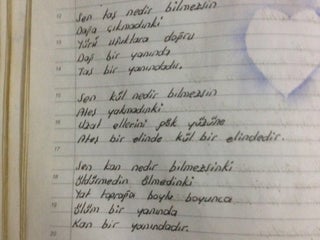 12 Sen taş nedir bilmezsin
Dağa çıkmadınki
13 Yürü ufuklara doğru
Dağ bir yanında
14 Taş bir yanındadır.
15 Sen kül nedir bilmezsin
Ateş yakmadınki
16 Uzat ellerini gök yüzüne
Ateş bir elinde kül bir elindedir.
17
Sen kan nedir bilmezsinki
18 Öldürmedin ölmedinki
Yat toprağa boylu boyunca
19 Ölüm bir yanında
20 Kan bir yanındadır.